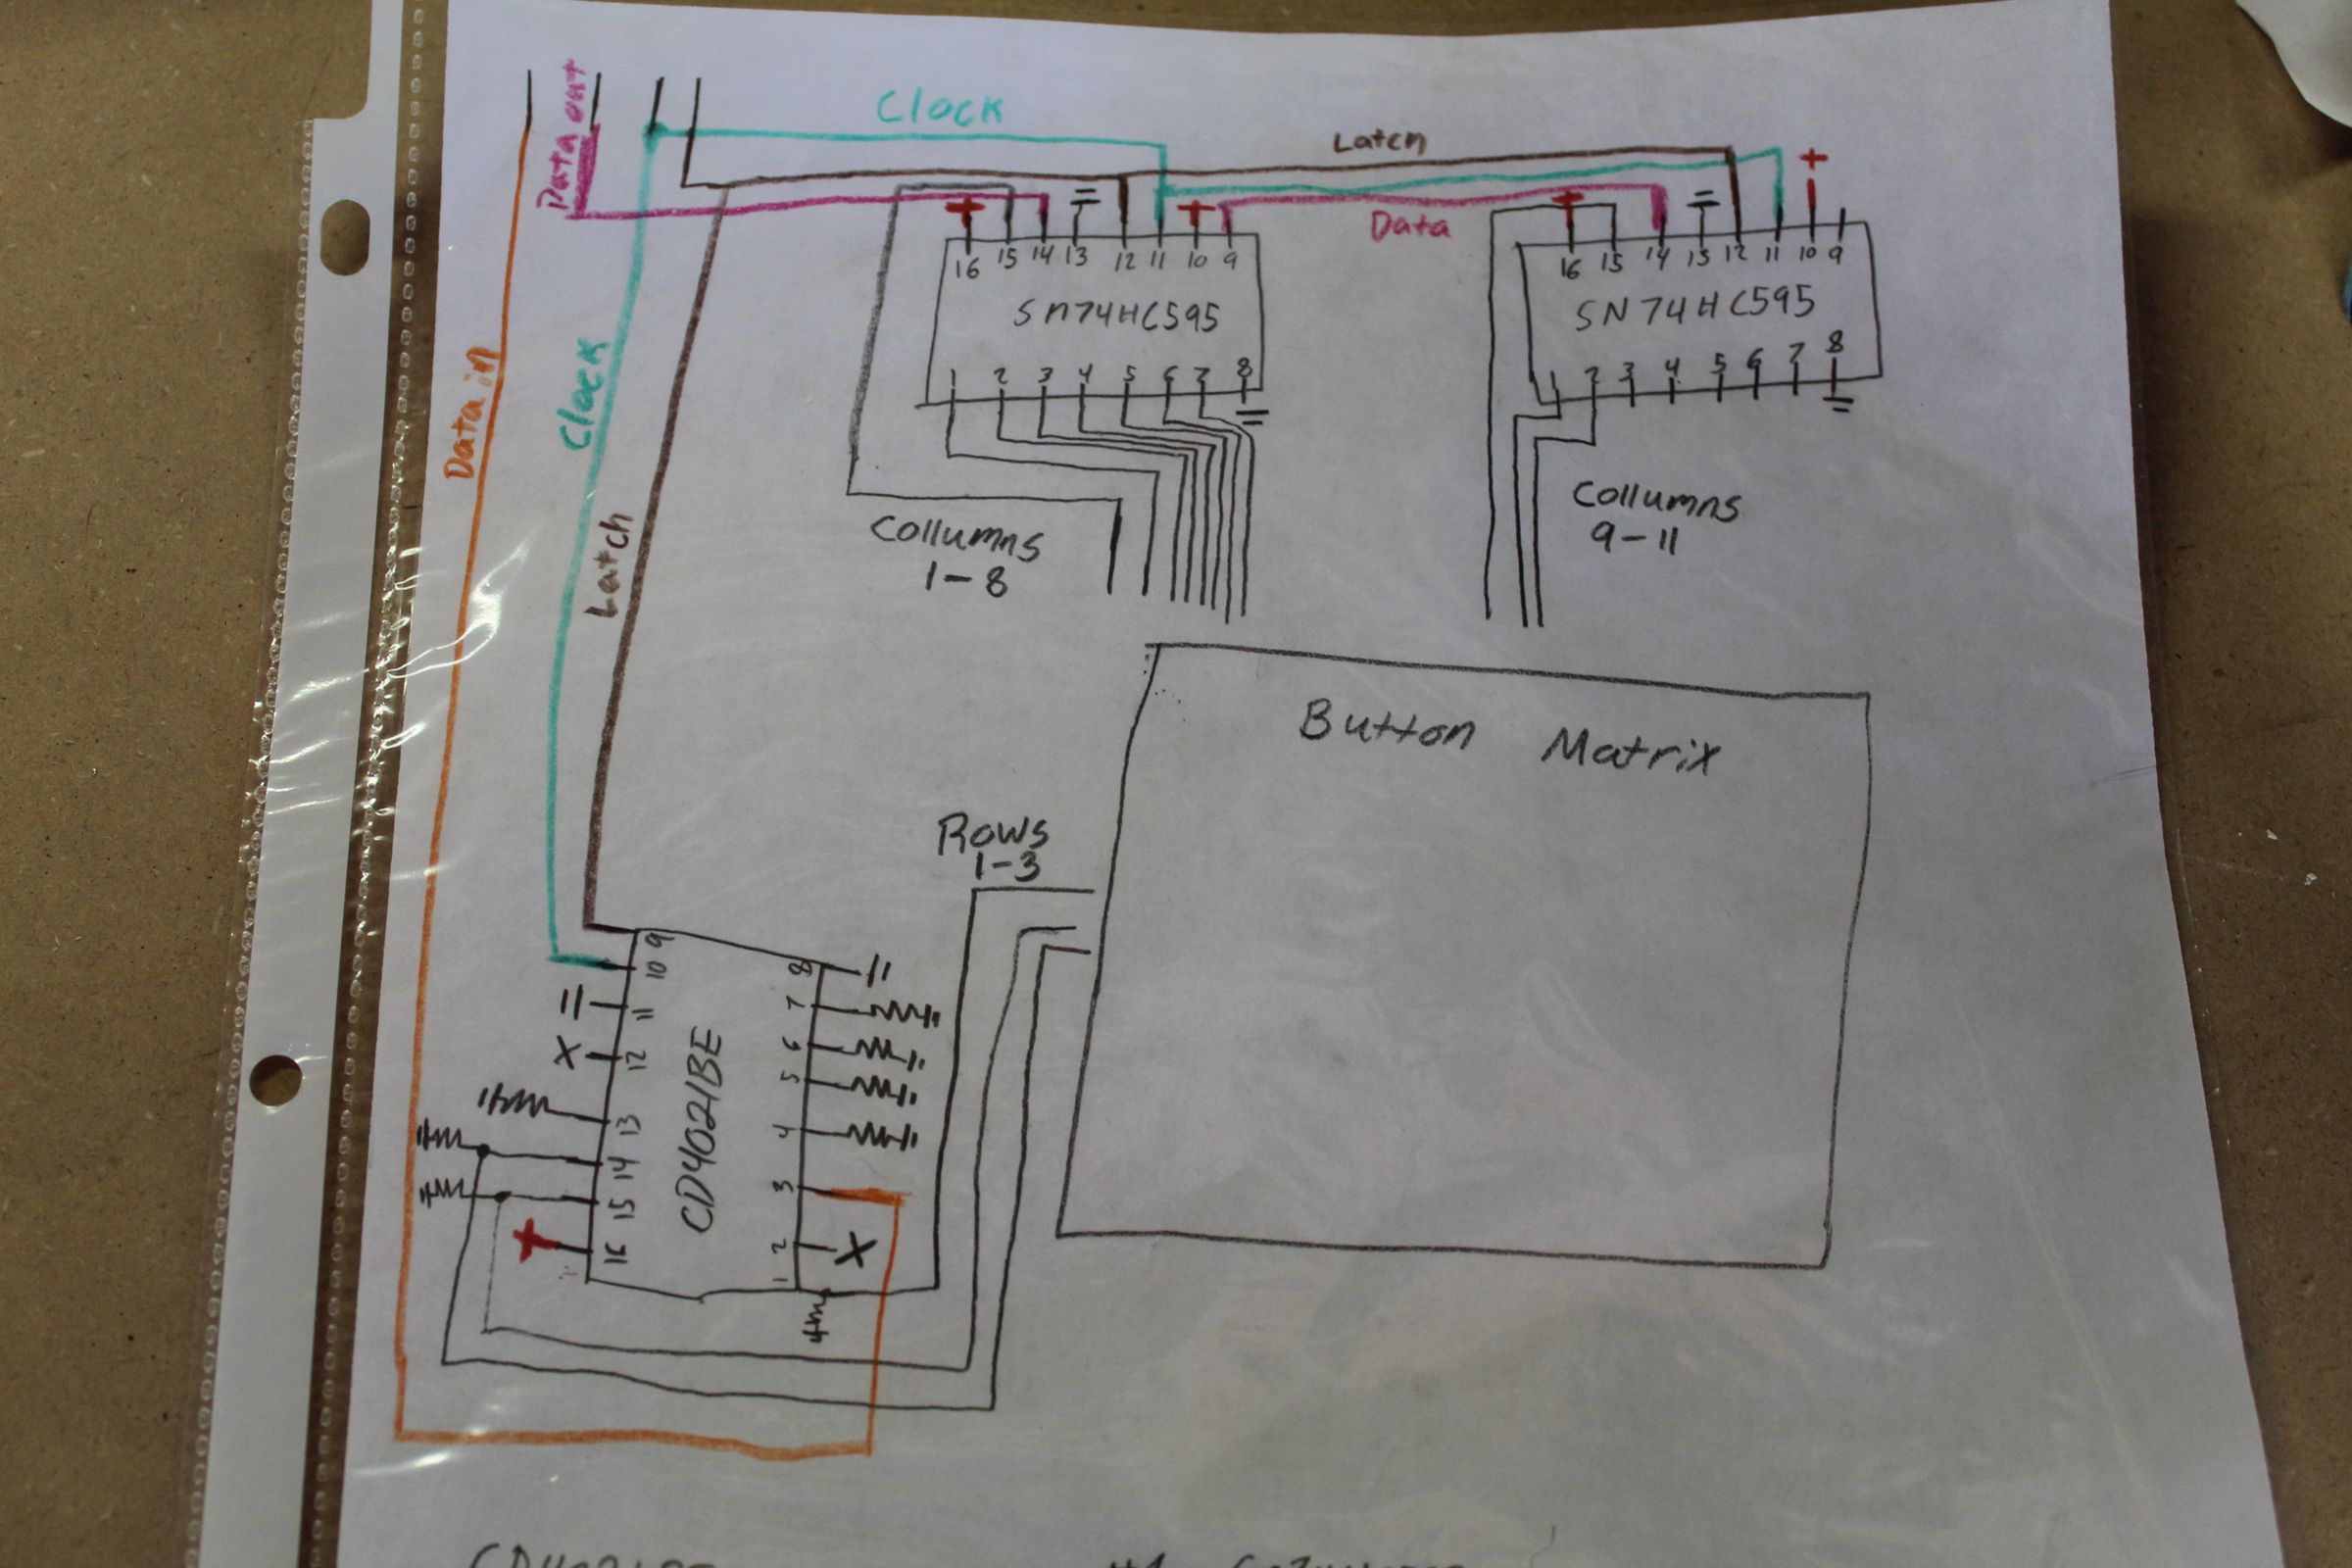 Data out
Clock
Latch
Data in
Clock
Latch
Data
+
+
+
+
16 15 14 13 12 11 10 9
SN74HC595
1 2 3 4 5 6 7 8
16 15 14 13 12 11 10 9
SN74HC595
1 2 3 4 5 6 7 8
Collumns
1-8
Collumns
9-11
Button Matrix
Rows
1-3
9 10 11 12 13 14 15 16
CD4021BE
8 7 6 5 4 3 2 1
X
X
+